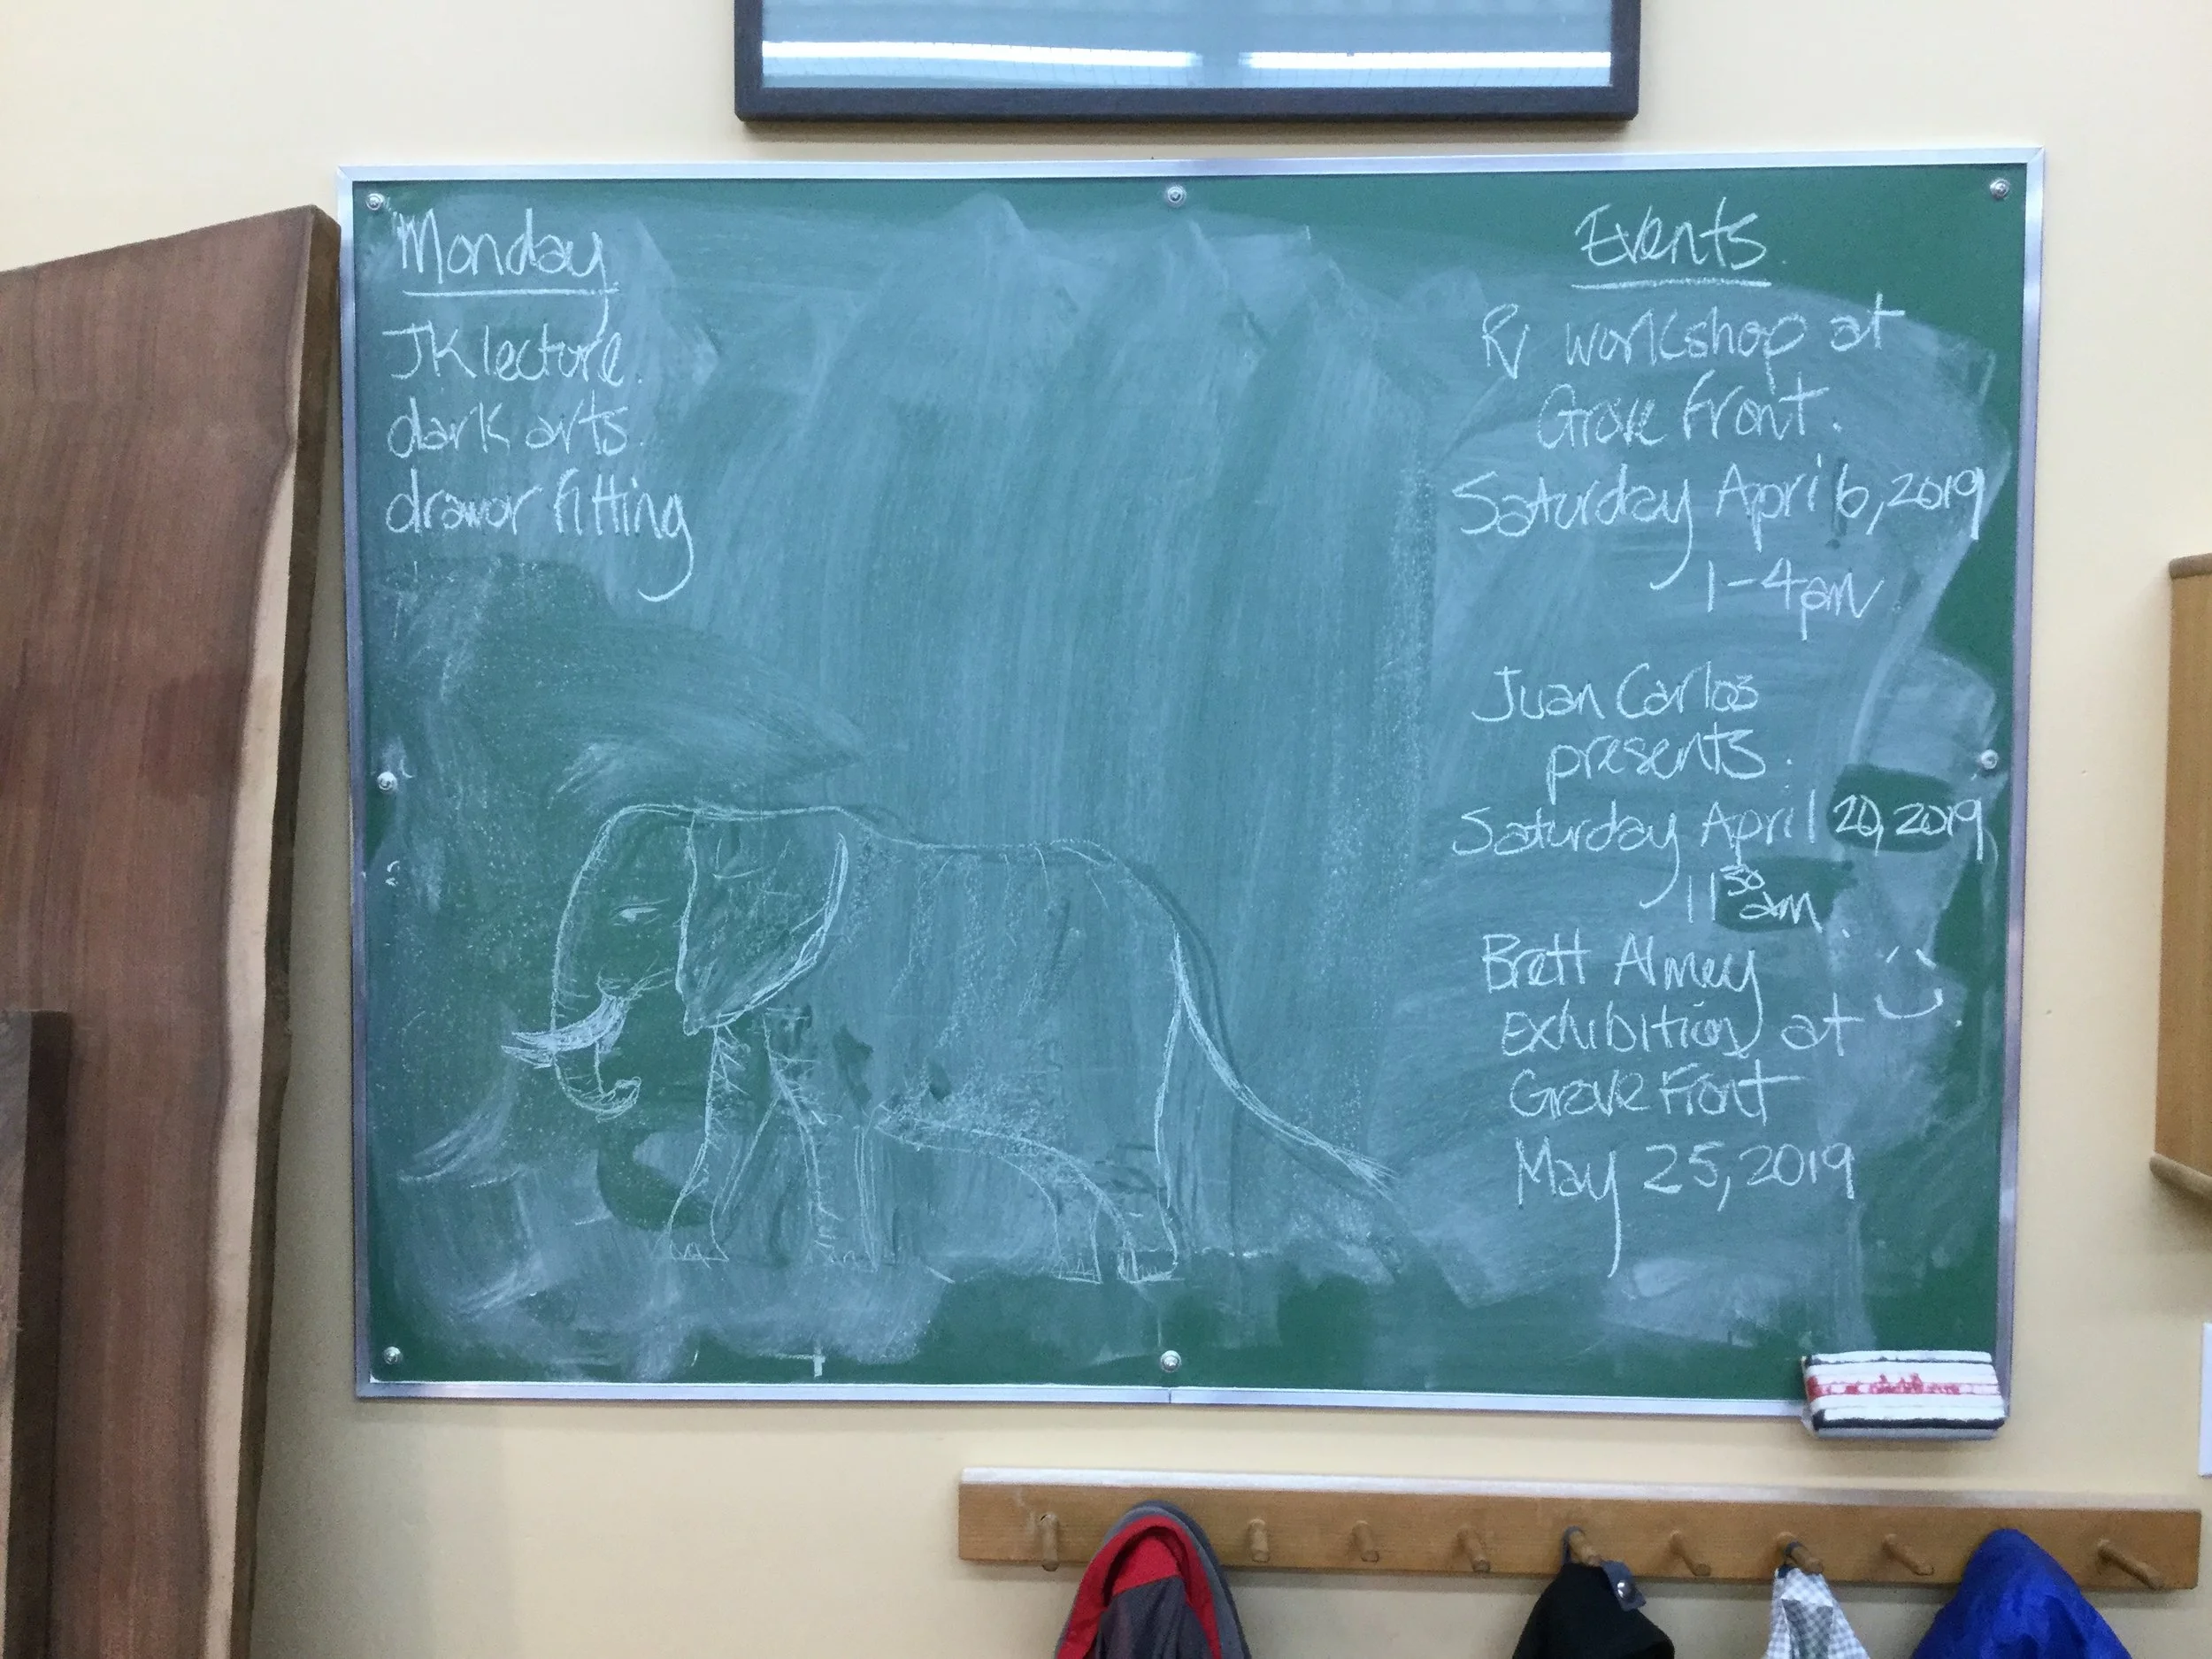 Monday
JK lecture.
dark arts.
drawer fitting
Events
RV workshop at
Grove Front.
Saturday April 6, 2019
1-4pm
Juan Carlos
presents.
Saturday April 20, 2019
11 30 am
Brett Almey
exhibition at
Grove Front
May 25, 2019